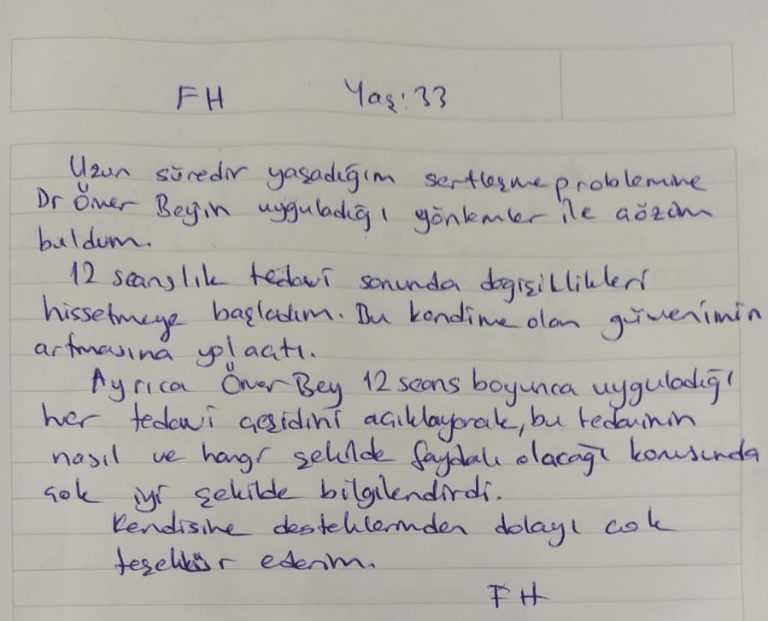 FH Yaş: 33
Uzun süredir yaşadığım sertleşme problemine
Dr Ömer Beyin uyguladığı yöntemler ile çözüm
buldum.
12 seanslık tedavi sonunda değişillikleri
hissetmeye başladım. Bu kendime olan güvenimin
artmasına yol açtı.
Ayrıca Ömer Bey 12 seans boyunca uyguladığı
her tedavi çeşidini açıklayarak, bu tedavinin
nasıl ve hangi şekilde faydalı olacağı konusunda
çok iyi şekilde bilgilendirdi.
Kendisine desteklerinden dolayı çok
teşekkür ederim.
FH